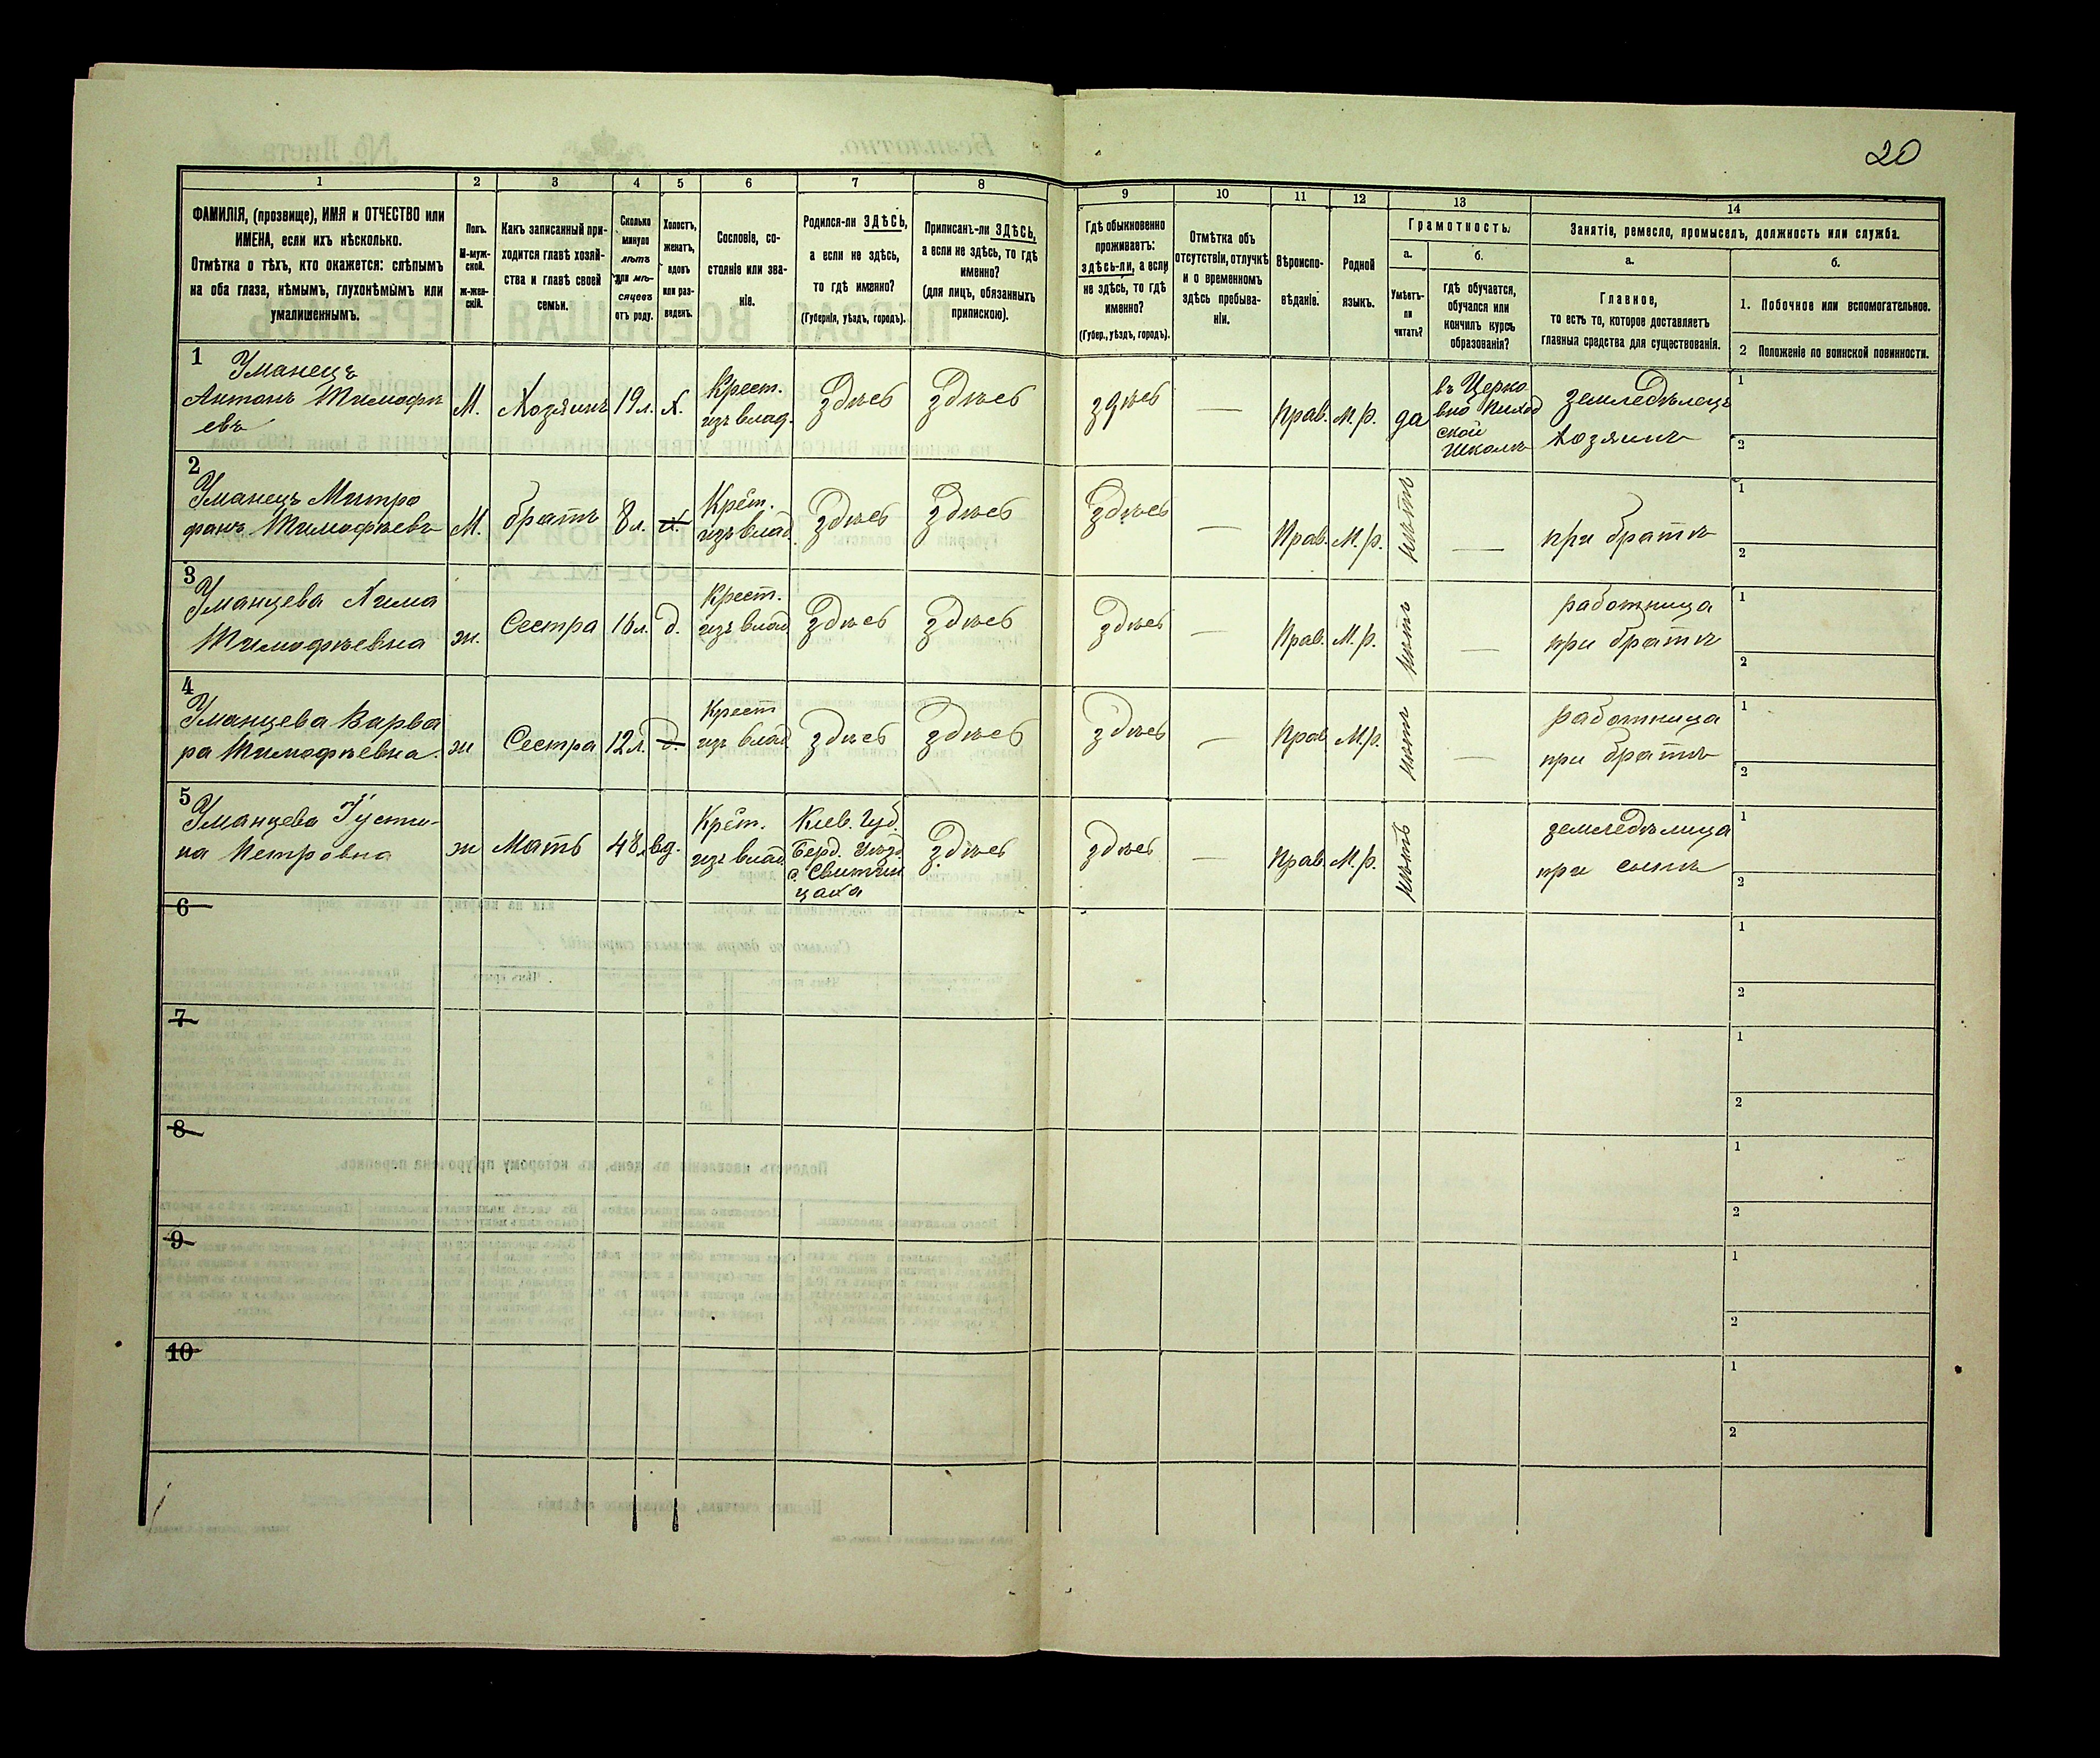 20
1 2 3 4 5 6 7 8 9 10 11 12 13 14
ФАМИЛІЯ, (прозвище), ИМЯ и ОТЧЕСТВО или
ИМЕНА, если ихъ нѣсколько.
Отмѣтка о тѣхъ, кто окажется: слѣпымъ
на оба глаза, нѣмымъ, глухонѣмымъ или
умалишеннымъ.
Полъ.
М-муж-
ской.
ж-жен-
скій.
Какъ записанный при-
ходится главѣ хозяй-
ства и главѣ своей
семьи.
Сколько
минуло
лѣтъ
или мѣ-
сяцевъ
отъ роду.
Холостъ,
женатъ,
вдовъ
или раз-
веденъ.
Сословіе, со-
стояніе или зва-
ніе.
Родился-ли ЗДѢСЬ,
а если не здѣсь,
то гдѣ именно?
(Губернія, уѣздъ, городъ).
Приписанъ-ли ЗДѢСЬ,
а если не здѣсь, то гдѣ
именно?
(для лицъ, обязанныхъ
припискою).
Гдѣ обыкновенно
проживаетъ:
здѣсь-ли, а если
не здѣсь, то гдѣ
именно?
(Губер., уѣздъ, городъ).
Отмѣтка объ
отсутствіи, отлучкѣ
и о временномъ
здѣсь пребыва-
ніи.
Вѣроиспо-
вѣданіе.
Родной
языкъ.
Грамотность.
а.
Умѣетъ-
ли
читать?
б.
гдѣ обучается,
обучался или
кончилъ курсъ
образованія?
Занятіе, ремесло, промыселъ, должность или служба.
а.
Главное,
то есть то, которое доставляетъ
главныя средства для существованія.
б.
1. Побочное или вспомогательное.
2 Положеніе по воинской повинности.
1 Уманецъ
Антонъ Тимофѣ
евъ
М.
Хозяинъ
19 л.
Х.
Крест.
изъ влад.
здѣсь
здѣсь
здѣсь
—
Прав.
М.р.
да
въ Церко
вно Приход
ской
Школѣ
земледѣлецъ
хозяинъ
1
2
2
Уманецъ Митро
фанъ Тимофѣевъ
М.
братъ
8 л.
х.
Крест.
изъ влад.
здѣсь
здѣсь
здѣсь
—
Прав.
М.р.
нѣтъ
—
при братѣ
1
2
3
Уманцева Хима
Тимофѣевна
ж.
Сестра
16 л.
д.
Крест.
изъ влад
здѣсь
здѣсь
здѣсь
—
Прав.
М.р.
нѣтъ
—
работница
при братѣ
1
2
4
Уманцева Варва
ра Тимофѣевна.
ж
Сестра
12 л.
д.
Крест
изъ влад.
здѣсь
здѣсь
здѣсь
—
Прав
М.р.
нѣтъ
—
работница
при братѣ
1
2
5
Уманцева Густи-
на Петровна
ж
Мать
48 л
вд.
Крест.
изъ влад.
Кіев. Губ.
Берд. Уѣзд.
здѣсь
здѣсь
—
Прав.
М.р.
нѣтъ
земледѣлица
при сынѣ
1
2
6
1
2
7
1
2
8
1
2
9
1
2
10
1
2